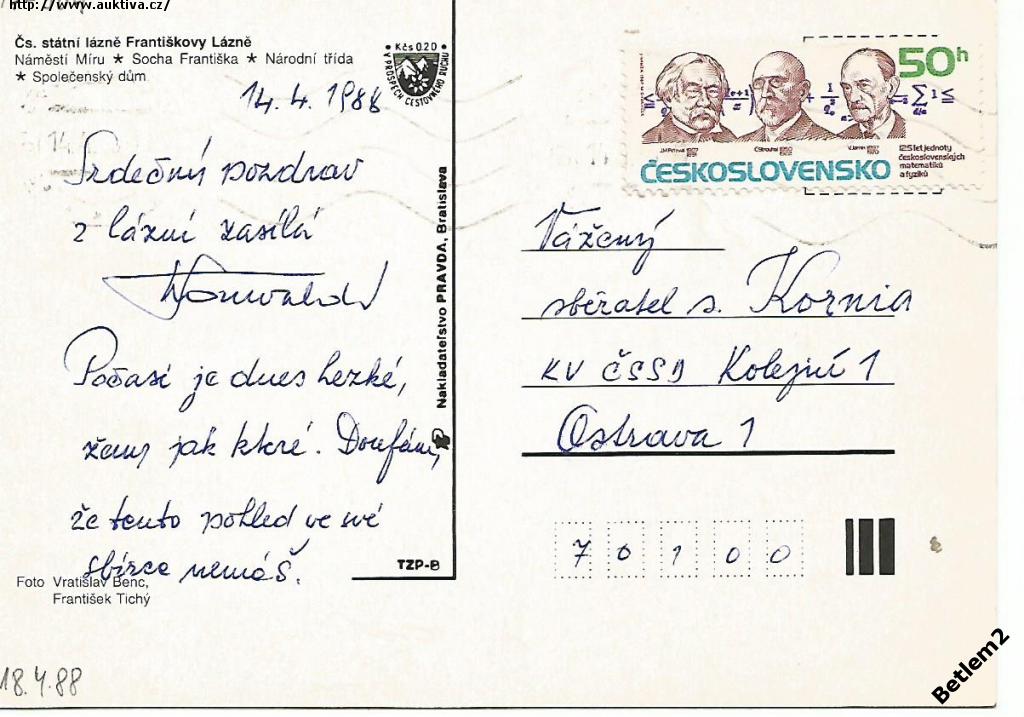 http://www.auktiva.cz/
Čs. státní lázně Františkovy Lázně
Náměstí Míru ★ Socha Františka ★ Národní třída
★ Společenský dům
• Kčs 0.20 •
V PROSPĚCH CESTOVNÉHO RUCHU
14. 4. 1988
Srdečný pozdrav
z lázní zasílá
Počasí je dnes hezké,
ženy jak které. Doufám,
že tento pohled ve své
sbírce nemáš.
Foto Vratislav Benc,
František Tichý
18.4.88
Nakladatelství PRAVDA, Bratislava
TZP-8
50h
ČESKOSLOVENSKO
125 let jednoty
československých
matematiků
a fyziků
Vážený
sběratel s. Kornia
KV ČSSD Kolejní 1
Ostrava 1
70100
Betlem2